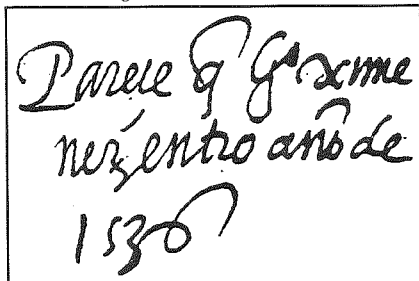 Parece q̃ Gᵃ xime
nez entro año de
1536